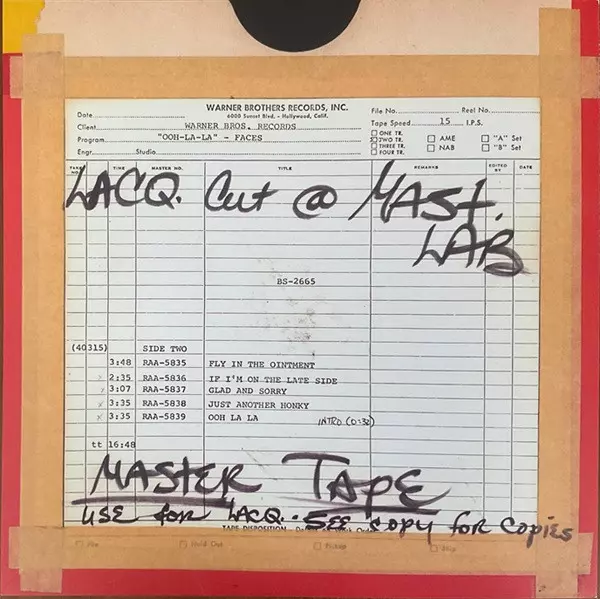 WARNER BROTHERS RECORDS, INC.
6000 Sunset Blvd. - Hollywood, Calif.
Date
File No. Reel No.
Client WARNER BROS. RECORDS
Tape Speed 15 I.P.S.
Program "OOH-LA-LA" - FACES
ONE TR.
TWO TR. AME "A" Set
THREE TR. NAB "B" Set
FOUR TR.
Engr. Studio
TAKE NO. TIME MASTER NO. TITLE REMARKS EDITED BY DATE
LACQ. Cut @ MAST.
LAB
BS-2665
(40315) SIDE TWO
3:48 RAA-5835 FLY IN THE OINTMENT
2:35 RAA-5836 IF I'M ON THE LATE SIDE
3:07 RAA-5837 GLAD AND SORRY
3:35 RAA-5838 JUST ANOTHER HONKY
3:35 RAA-5839 OOH LA LA INTRO (0:32)
tt 16:48
MASTER TAPE
USE for LACQ. - SEE copy for copies
TAPE DISPOSITION
File Hold Out Pickup Ship